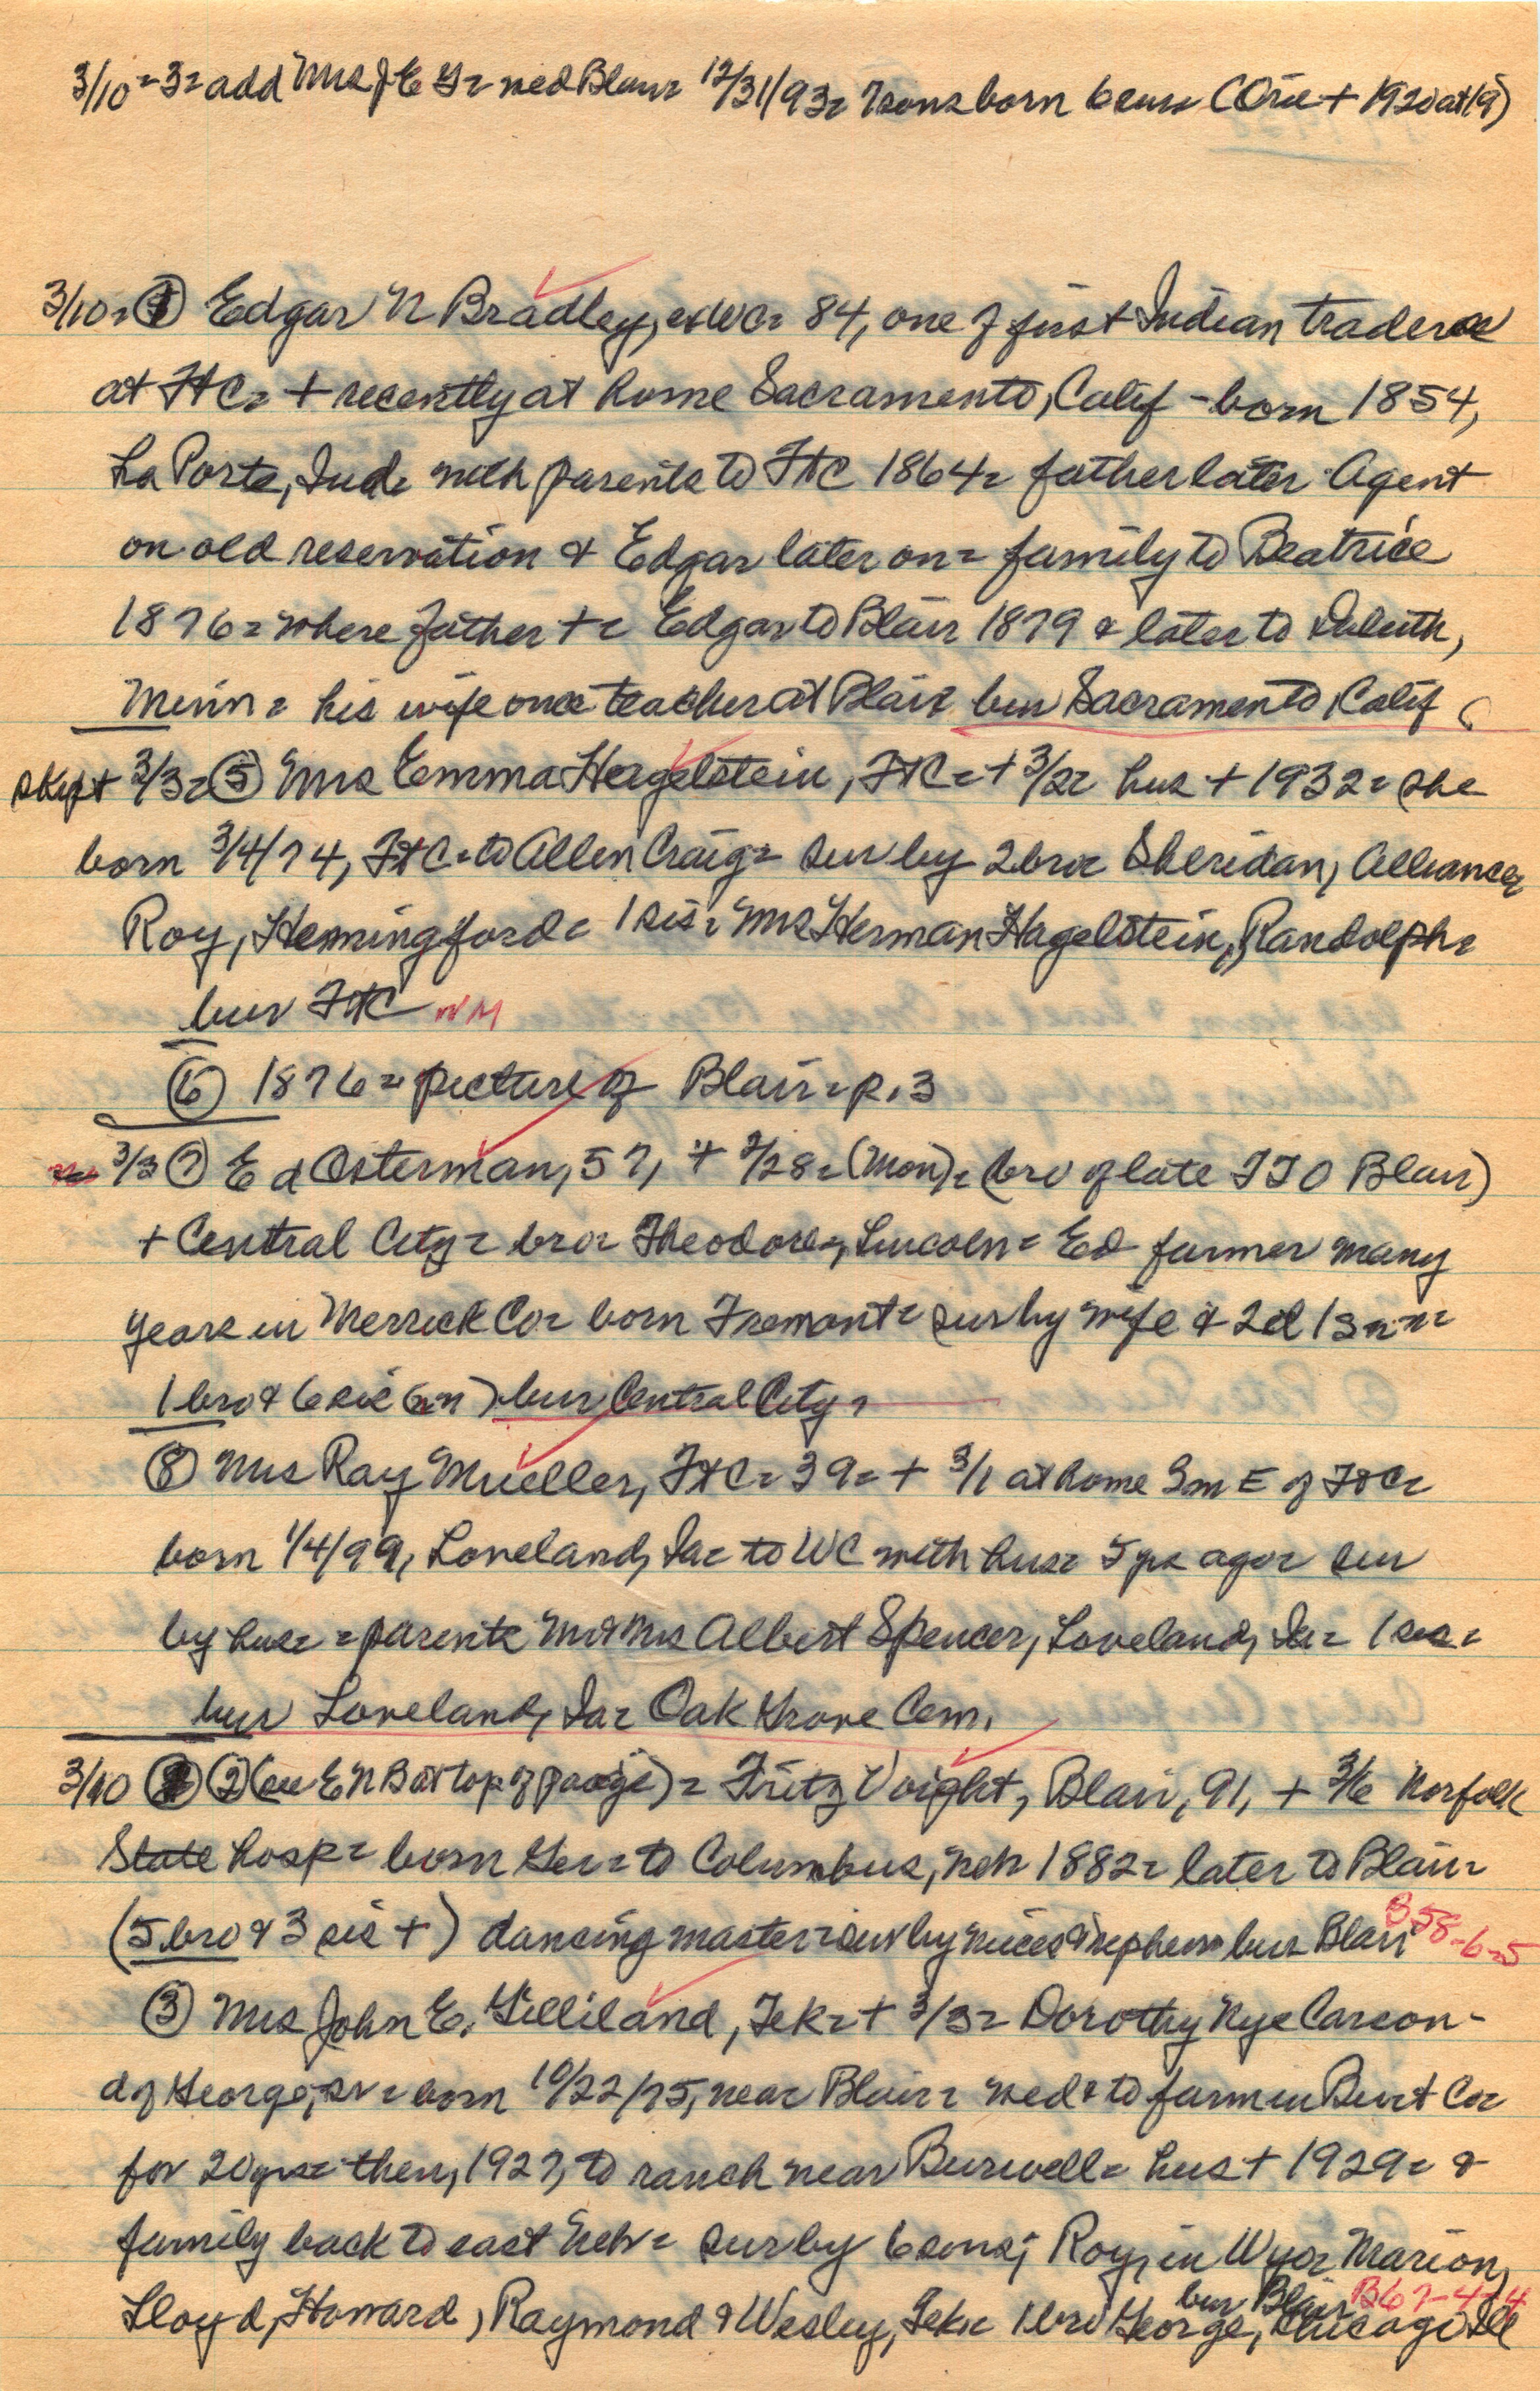 3/10 = 3 = add Mrs J E G = wed Blair 12/31/93 = 7 sons born 6 surv (One + 1920 at 19)
3/10 = ① Edgar N Bradley, exWC = 84, one of first Indian traders
at FtC = + recently at home Sacramento, Calif - born 1854,
La Porte, Ind. with parents to FtC 1864 = father later Agent
on old reservation & Edgar later on = family to Beatrice
1876 = where father + = Edgar to Blair 1879 & later to Duluth,
Minn = his wife once teacher at Blair bur Sacramento, Calif
skipt 3/3 = ⑤ Mrs Emma Hagelstein, FtC = + 3/2 = hus + 1932 = she
born 3/4/74, FtC = to Allen Craig = sur by 2 bro = Sheridan, Alliance,
Roy, Hemingford = 1 sis = Mrs Herman Hagelstein, Randolph =
bur FtC NM
⑥ 1876 = picture of Blair = p. 3
3/3 ⑦ Ed Osterman, 57, + 2/28 = (Mon) = (bro of late TTO Blair)
+ Central City = bro = Theodore, Lincoln = Ed farmer many
years in Merrick Co = born Fremont = sur by wife & 2 d 1 s n n =
1 bro & 6 sis (nn) bur Central City =
⑧ Mrs Ray Mueller, FtC = 39 = + 3/1 at home 3m E of FtC =
born 1/4/99, Loveland, Ia = to WC with hus = 5 yrs ago = sur
by hus = parents Mr & Mrs Albert Spencer, Loveland, Ia = 1 sis =
bur Loveland, Ia = Oak Grove Cem.
3/10 ② (see E N B at top of page) = Fritz Voight, Blair, 91, + 3/6 Norfolk
State hosp = born Ger = to Columbus, Neb 1882 = later to Blair =
(5 bro & 3 sis +) dancing master = sur by nieces & nephews bur Blair B 58-6-5
③ Mrs John E. Gilliland, Tek = + 3/3 = Dorothy Nye Carson -
d of George, sr = born 10/22/75, near Blair = wed & to farm in Burt Co =
for 20 yrs = then, 1927, to ranch near Burwell = hus + 1929 = &
family back to east Neb = sur by 6 sons; Roy, in Wyo = Marion,
bur Blair B67-4-4
Lloyd, Howard, Raymond & Wesley, Tek = 1 bro George, Chicago Ill